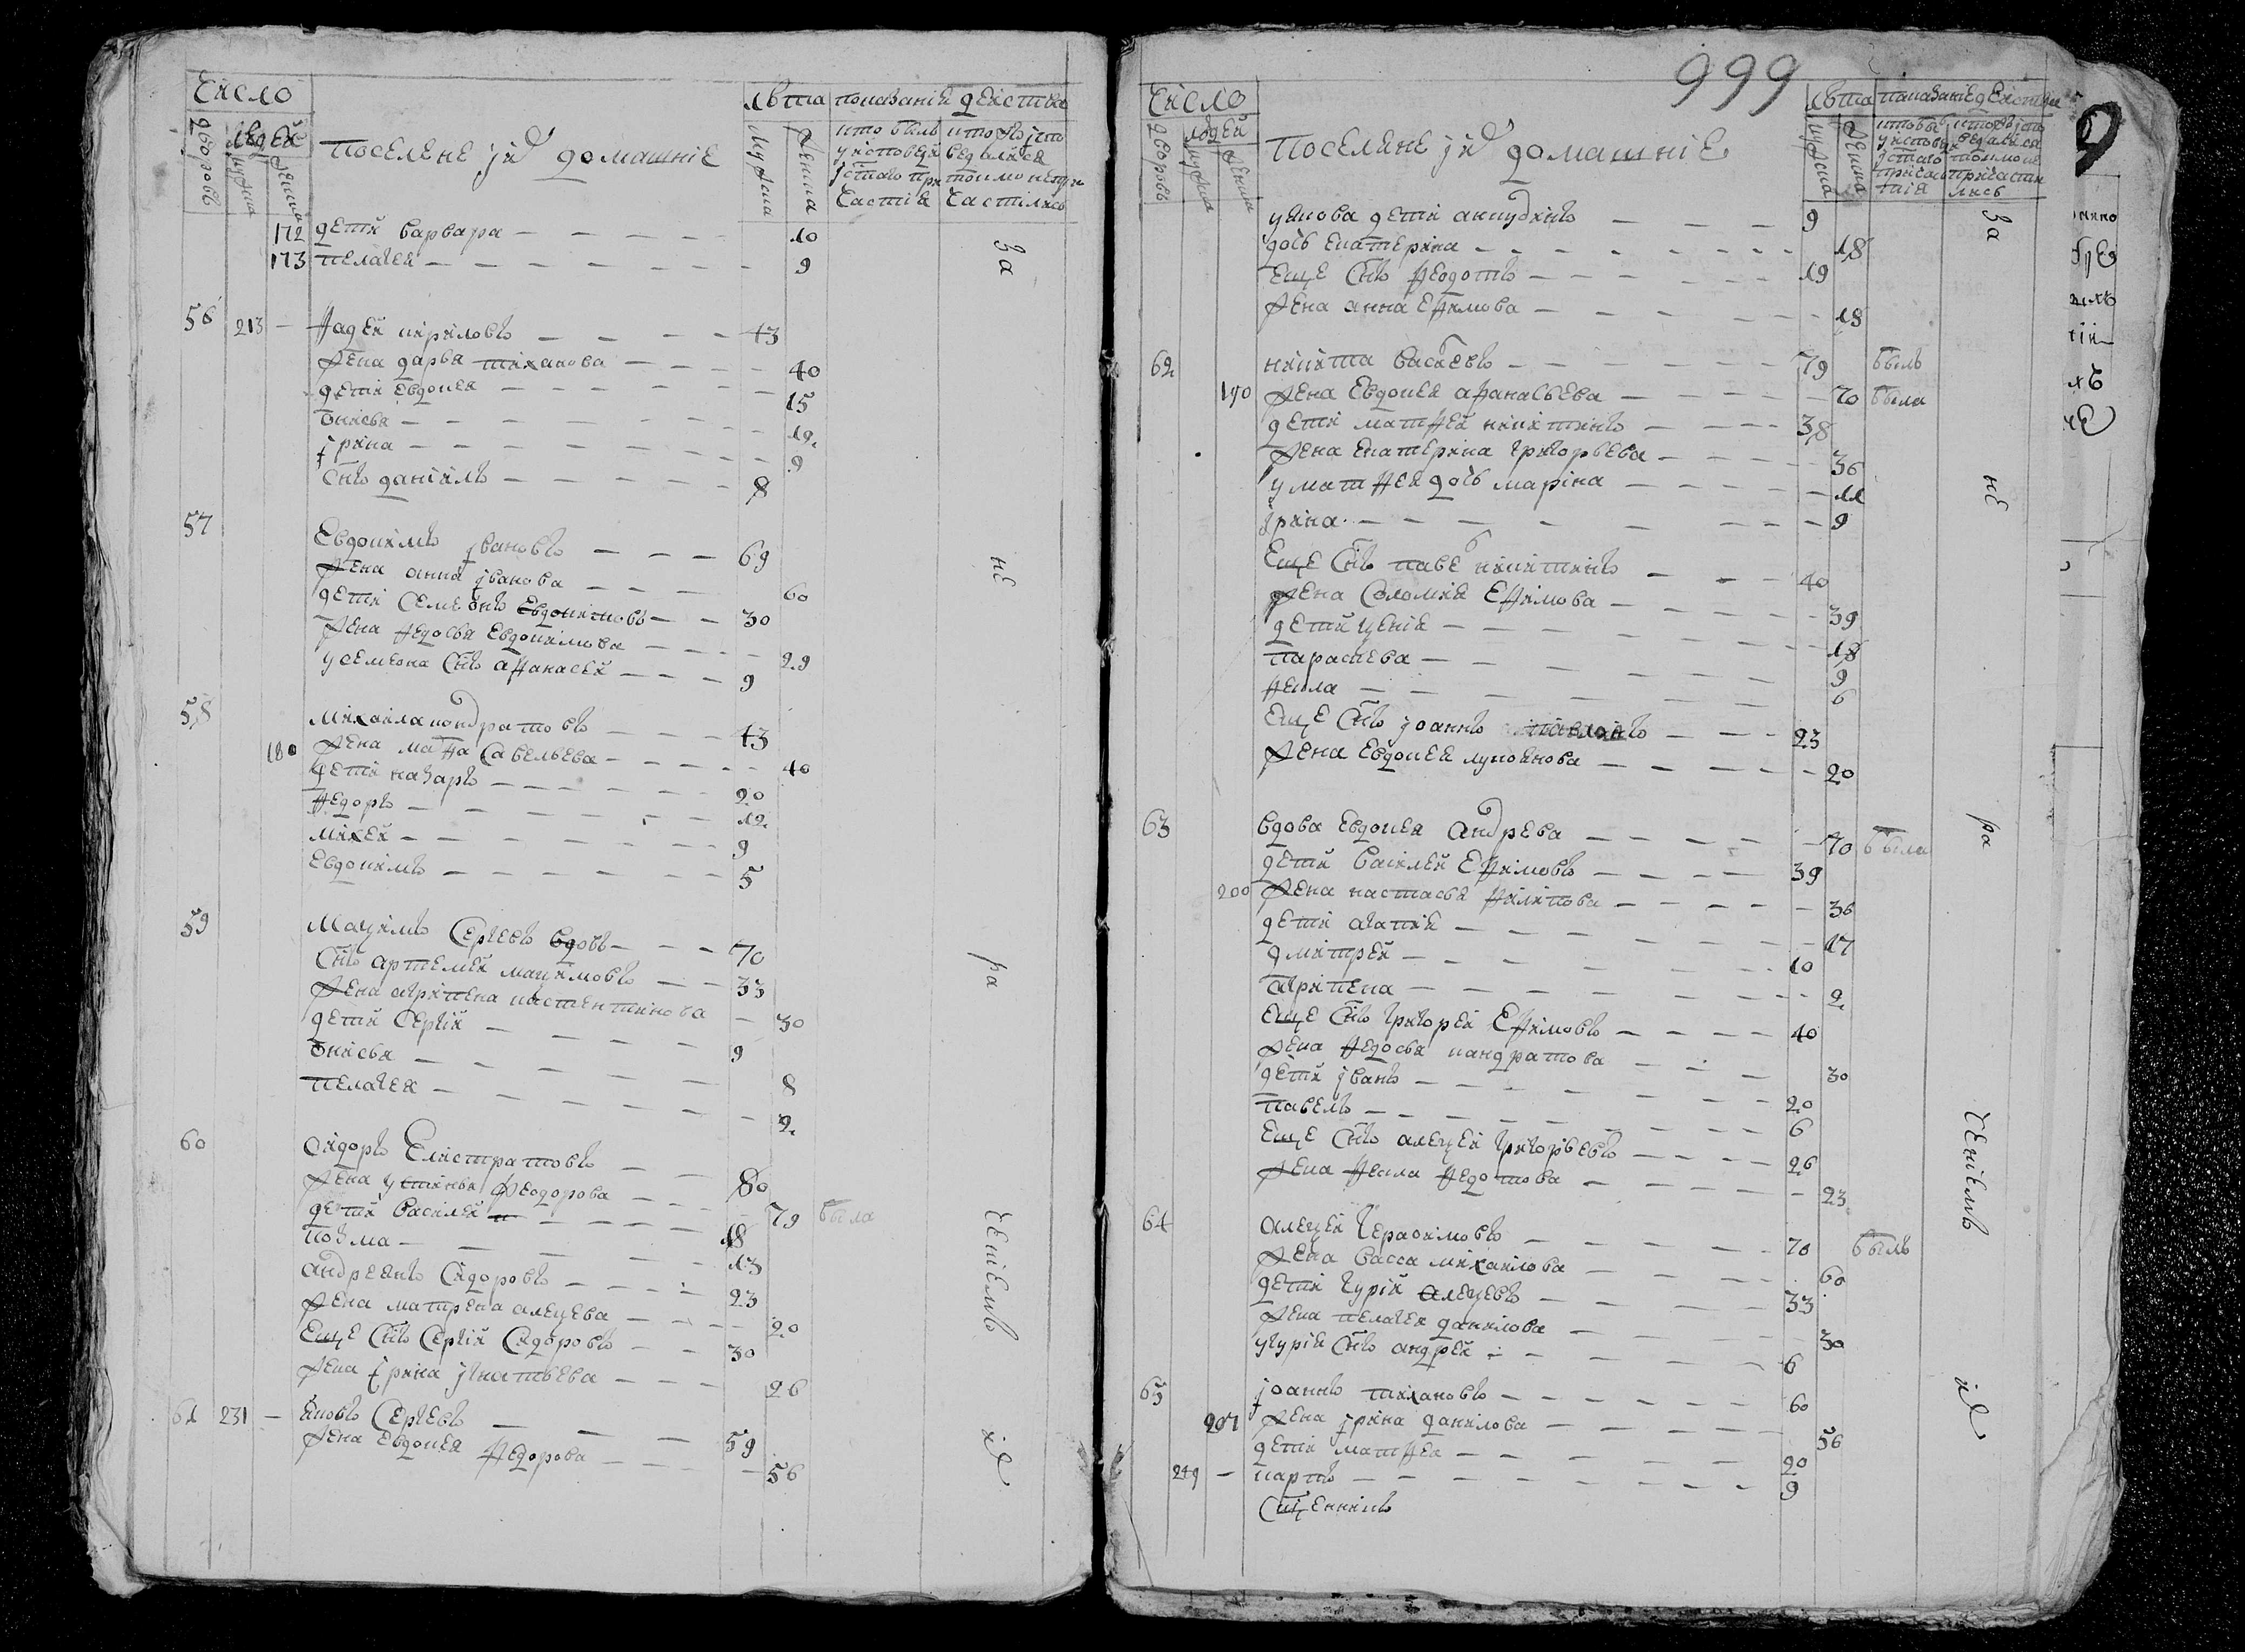 Число
дворовъ
людей
мужска
женска
поселяне и их домашние
лѣта
мужска
женска
показание действа
кто былъ у исповеди и святаго причастия
кто токмо исповедался
172 дети варвара 10
173 пелагея 9
56 213 фадей кириловъ 43
жена дарья тиханова 40
дети евдокея 15
ѡнисья 12
ирина 9
снъ данiилъ 8
57 Евдокимъ ивановъ 69
жена анна иванова 60
дети семенъ Евдокимовъ 30
жена федосья евдокимова 29
у семиона снъ афанасей 9
58 михаила кондратовъ 43
180 жена мафа савельева 40
дети назаръ 20
федоръ 12
михей 9
Евдокимъ 5
59 Мацимъ Сергеевъ вдовъ 70
снъ артемей мацимовъ 33
жена агрипена костентинова 30
дети Сергiй 9
ѡнисья 8
пелагея 2
60 сидоръ Елистратовъ 80
жена устинья феодорова 79 была
дети василей 18
козма 13
андреянъ сидоровъ 23
жена матрена алецева 20
Еще снъ Сергiй Сидоровъ 30
жена ирина игнатьева 26
61 231 яковъ Сергеевъ 59
жена Евдокея федорова 56
За
не
ра
ченiемъ
их
999
Число
дворовъ
людей
мужска
женска
поселяне и их домашнiе
лѣта
мужска
женска
показанiе действа
у якова дети анкудинъ 9
дочь екатерина 18
Еще снъ феодотъ 19
жена анна ефимова 18
62 никита васиевъ 79 былъ
190 жена Евдокея афанасьева 70 была
дети матфей никитинъ 38
жена екатерина григорьева 36
у матфея дочь марiна 11
ирина 9
Еще снъ паве никитинъ 40
жена соломия Ефимова 39
дети цения 18
параскева 9
фекла 6
Еще снъ иоаннъ 23
жена Евдокея лукоянова 20
63 вдова Евдокея андрева 70 была
дети василей Ефимовъ 39
200 жена настасья филипова 36
дети агапия 17
дмитрей 10
агрипена 2
Еще снъ григорей Ефимовъ 40
жена федосья кандратова 30
дети иванъ 20
павелъ 6
Еще снъ алецей григорьевъ 26
жена фекла федотова 23
64 алецей герасимовъ 70 былъ
жена васса михаилова 60
дети гурiй алецевъ 33
жена пелагея данилова 30
у гурiя снъ андрей 6
65 иоаннъ тихановъ 60
207 жена ирина данилова 56
дети матфеа 20
249 карпъ 9
Сщенникъ
За
не
ра
ченiемъ
их